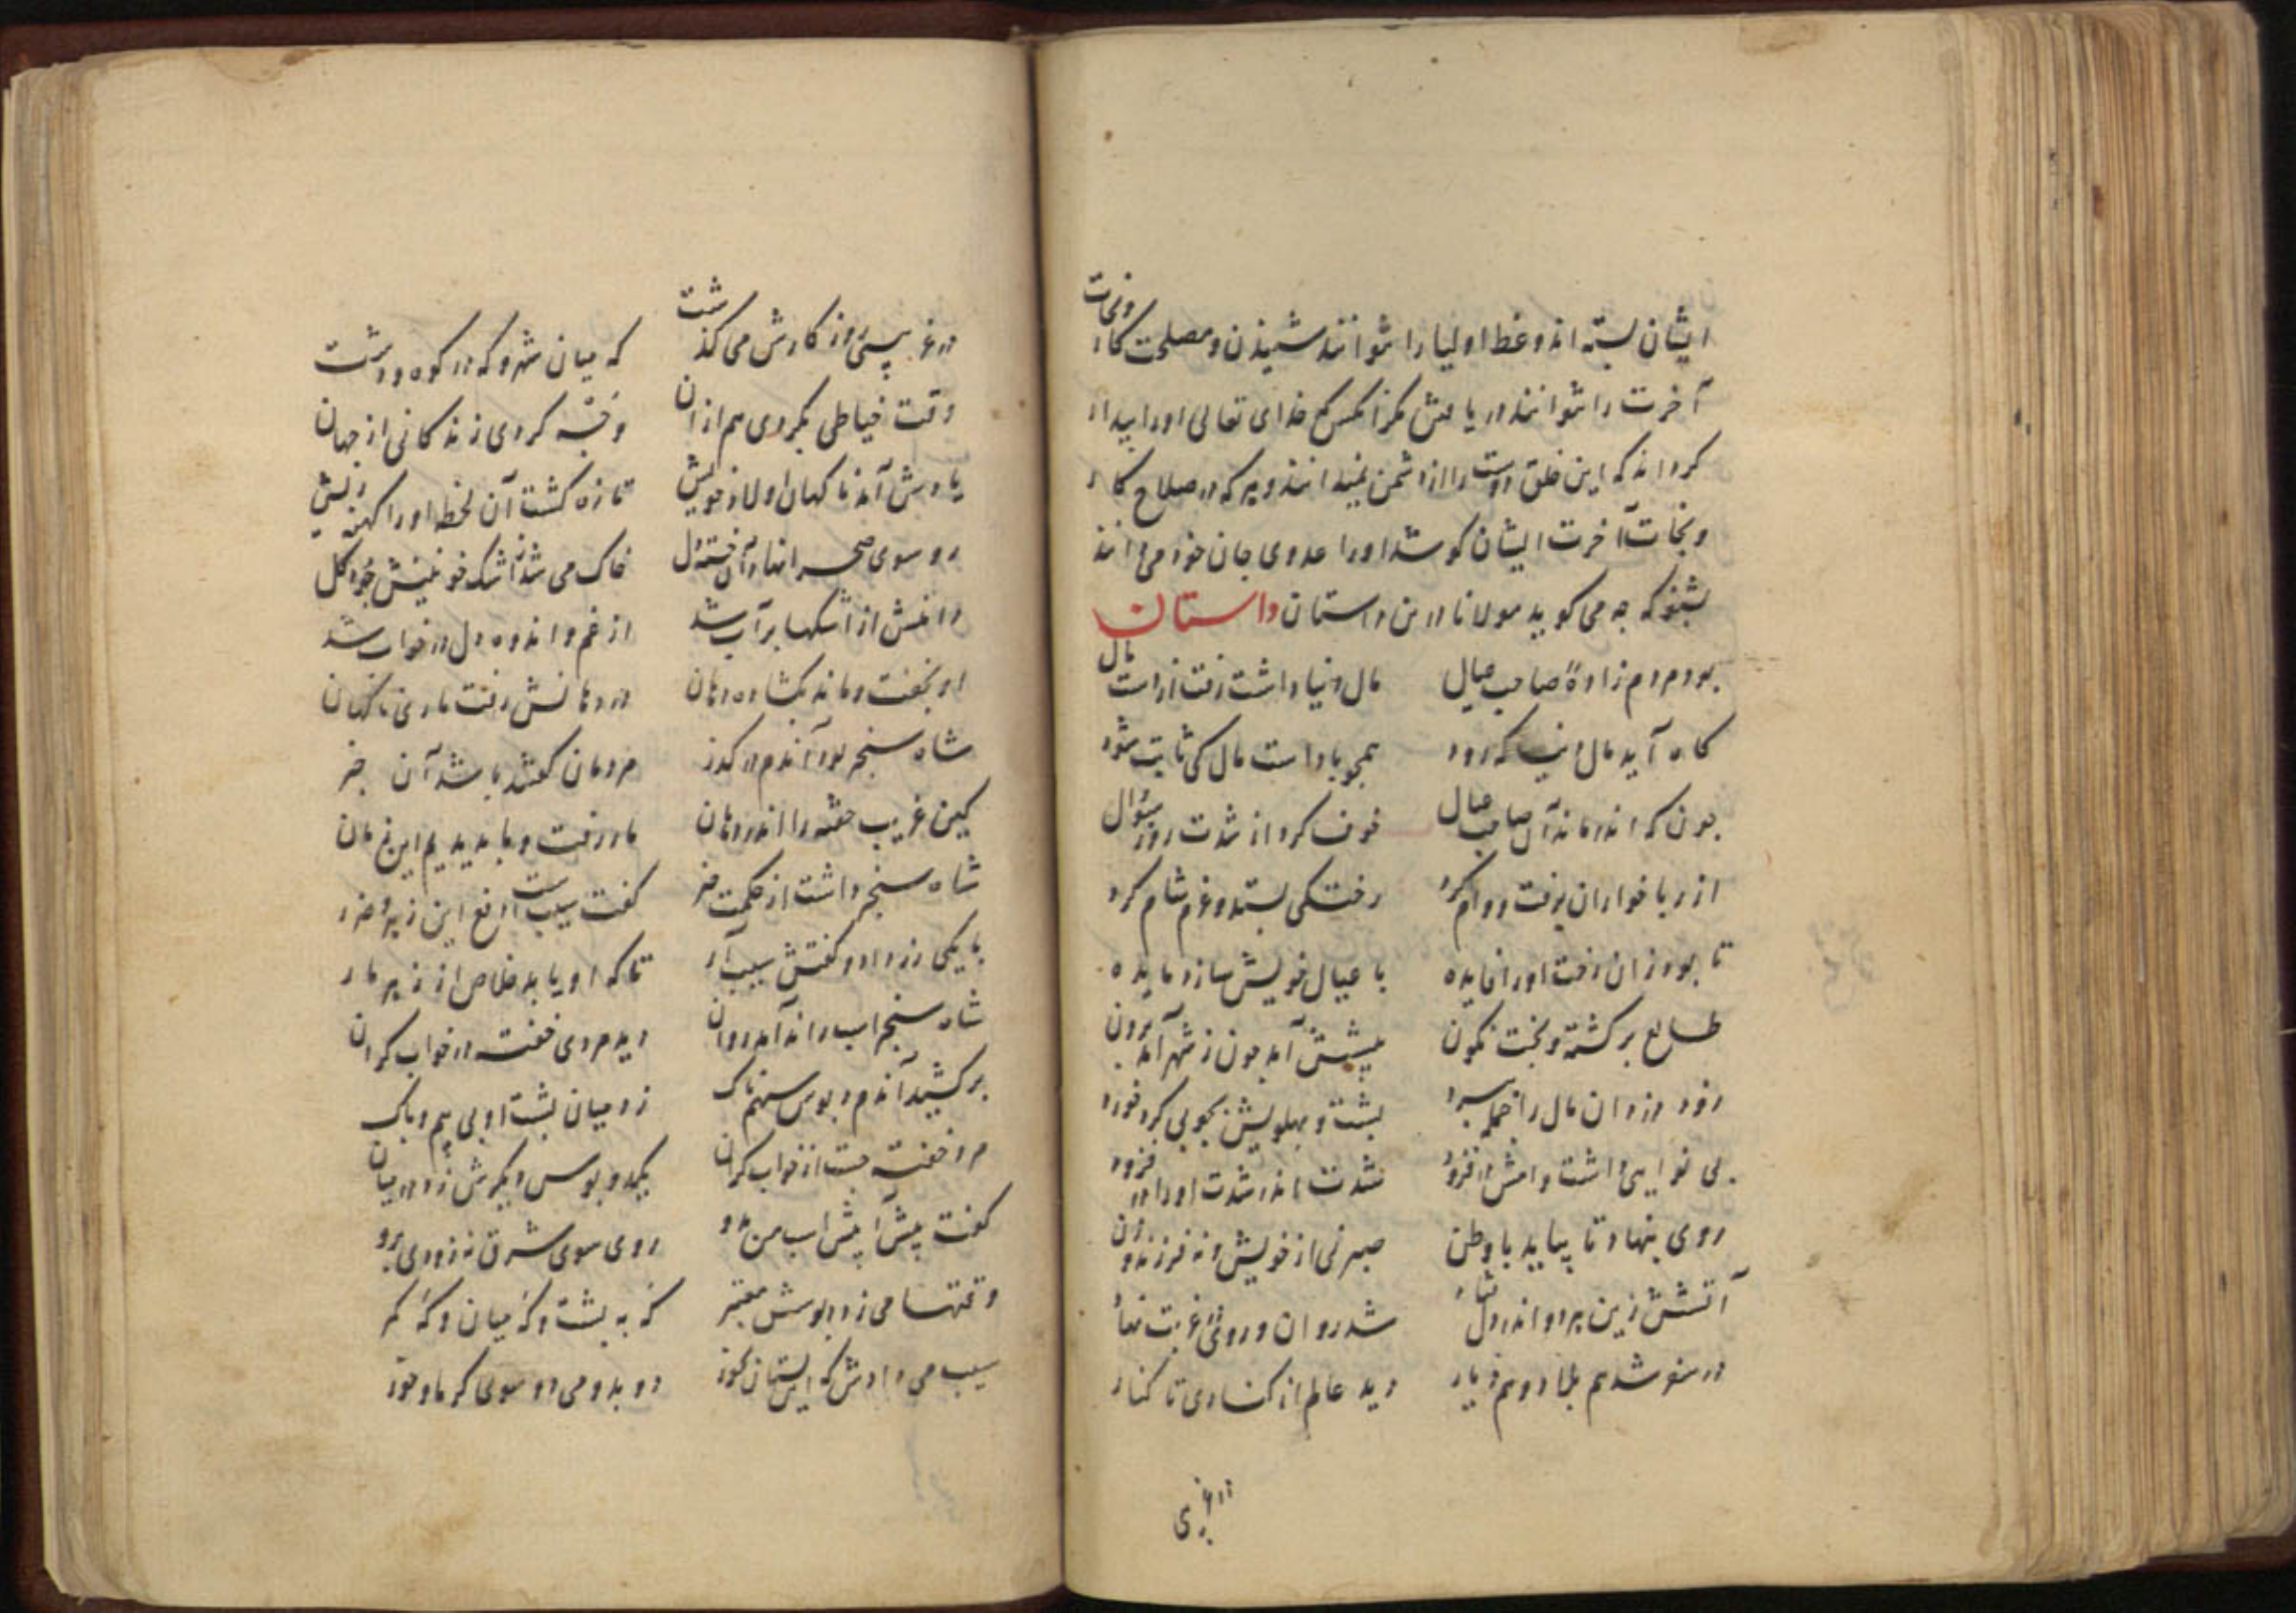 ایشان بسته اند وعظ اولیا را نتوانند شنیدن و مصلحت کار و نجات
آخرت را نتوانند دریافتن مگر آنکس که خدای تعالی او را بیدار
کرداند که این خلق دوست را از دشمن نمیدانند و هر که در صلاح کار
و نجات آخرت ایشان کوشد او را عدوی جان خود می دانند
بشنو که چه می کوید مولانا درین داستان داستان
بود مردم زاده صاحب عیال مال دنیا داشت رفت از دست مال
کاه آید مال دنیا که رود همچو باد است مال کی ثابت شود
چون که اندر ماند آن صاحب عیال خوف کرد از شدت روز سؤال
از ربا خواران برفت و وام کرد رختکی بستد و عزم شام کرد
تا بود زان رخت او را فایده با عیال خویش سازد مایده
طالع برکشته و بخت نکون پیشش آمد چون ز شهر آمد برون
دزد دزدان مال را جمله ببرد پشت و پهلویش بچوبی کرد خورد
بی نوایی داشت وامش در فزود شدت اندر شدت او را در فزود
روی ننهاد تا بیاید با وطن صبر نی از خویش و نه فرزند و زن
آتشش زین درد اندر دل فتاد شد روان و روی در غربت نهاد
در سفر شد هم بلاد و هم دیار دید عالم از کناری تا کنار
در غریبی
در غریبی روز کارش می کذشت که میان شهر و که در کوه و دشت
وقت خیاطی بکردی هم از آن وجه کردی زندکانی از جهان
یادش آمد ناکهان اولاد خویش تازه کشت آن لحظه او را کهنه ریش
رو سوی صحرا نهاد آن خسته دل خاک می شد ز اشک خونینش چو کل
دامنش از اشکها پر آب شد از غم و اندوه دل در خواب شد
او بخفت و مانده بکشاده دهان در دهانش رفت ماری ناکهان
شاه سنجر بود آندم در کذر مردمان کفتند باشد آن خبر
کین غریب خفته را اندر دهان مار رفت و ما بدیدیم این زمان
شاه سنجر داشت از حکمت خبر کفت سیبست دافع این زهر و ضرر
با یکی زر داد و کفتش سیب آر تا که او یابد خلاص از زهر مار
شاه سنجر اسب راند آمد روان دید مردی خفته در خواب کران
بر کشید آندم دبوس سهمناک زد میان پشت او بی بیم و باک
مرد خفته جست از خواب کران یک دو بوس دیکرش زد در میان
کفت پیش آ پیش اسب من بدو روی سوی شرق نه زودی برو
وقتها می زد دبوسش معتبر که به پشت و که میان و که کمر
سیب می دادش که این بستان بخور می دو سوی کرما و خور